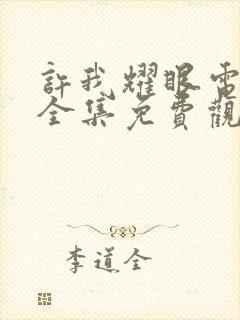 許我耀眼電
全集免費觀
李道全